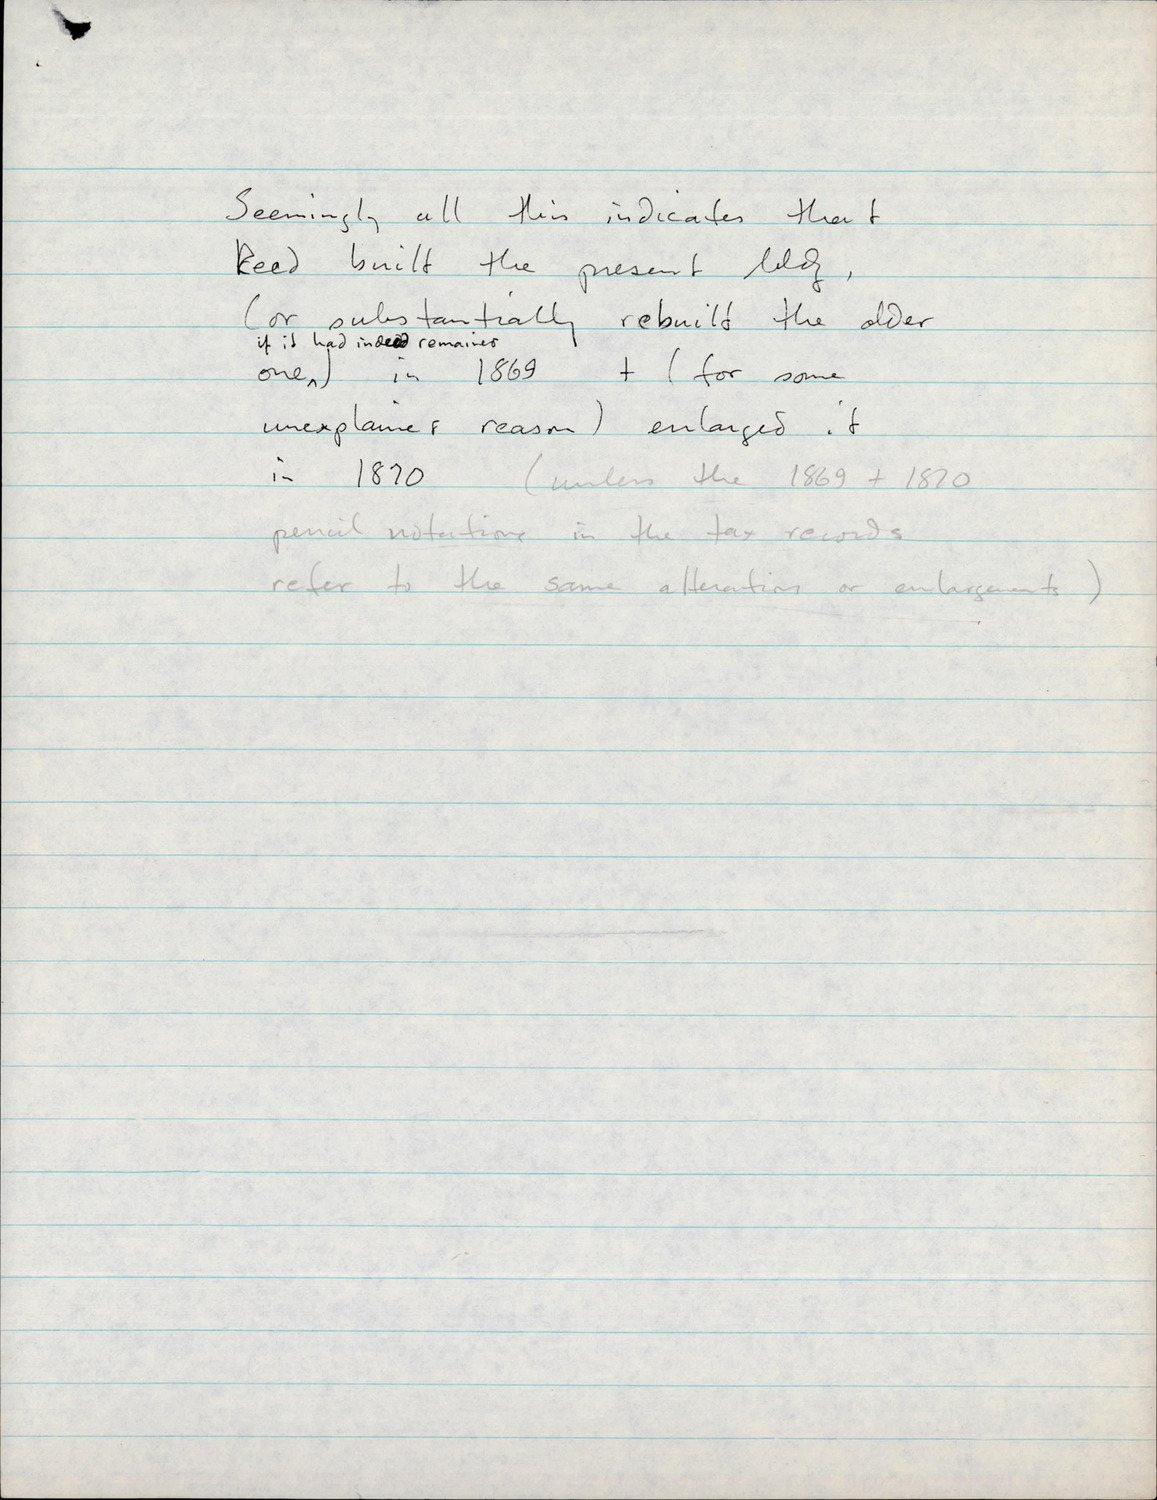 Seemingly all this indicates that
Reed built the present bldg,
(or substantially rebuilt the older
if it had indeed remained
one^) in 1869 + (for some
unexplained reason) enlarged it
in 1870 (unless the 1869 + 1870
pencil notations in the tax records
refer to the same alterations or enlargements)